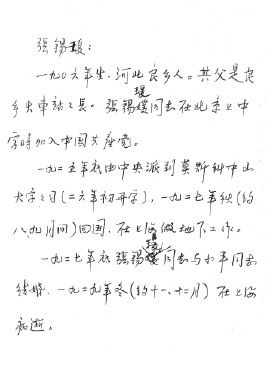 張錫瑗:
一九〇六年生,河北良乡人。其父是良
乡火車站之長。張錫瑗同志在北京上中
学時加入中国共产党。
一九二五年被由中央派到莫斯科中山
大学学习(二六年初开学),一九二七年秋(约
八九月间)回国,在上海做地下工作。
一九二七年底張錫瑗同志与小平同志
结婚,一九二九年冬(约十一、十二月)在上海
病逝。